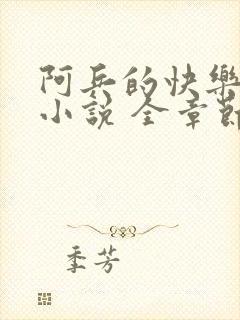 阿兵的快樂
小説 全章節
季芳